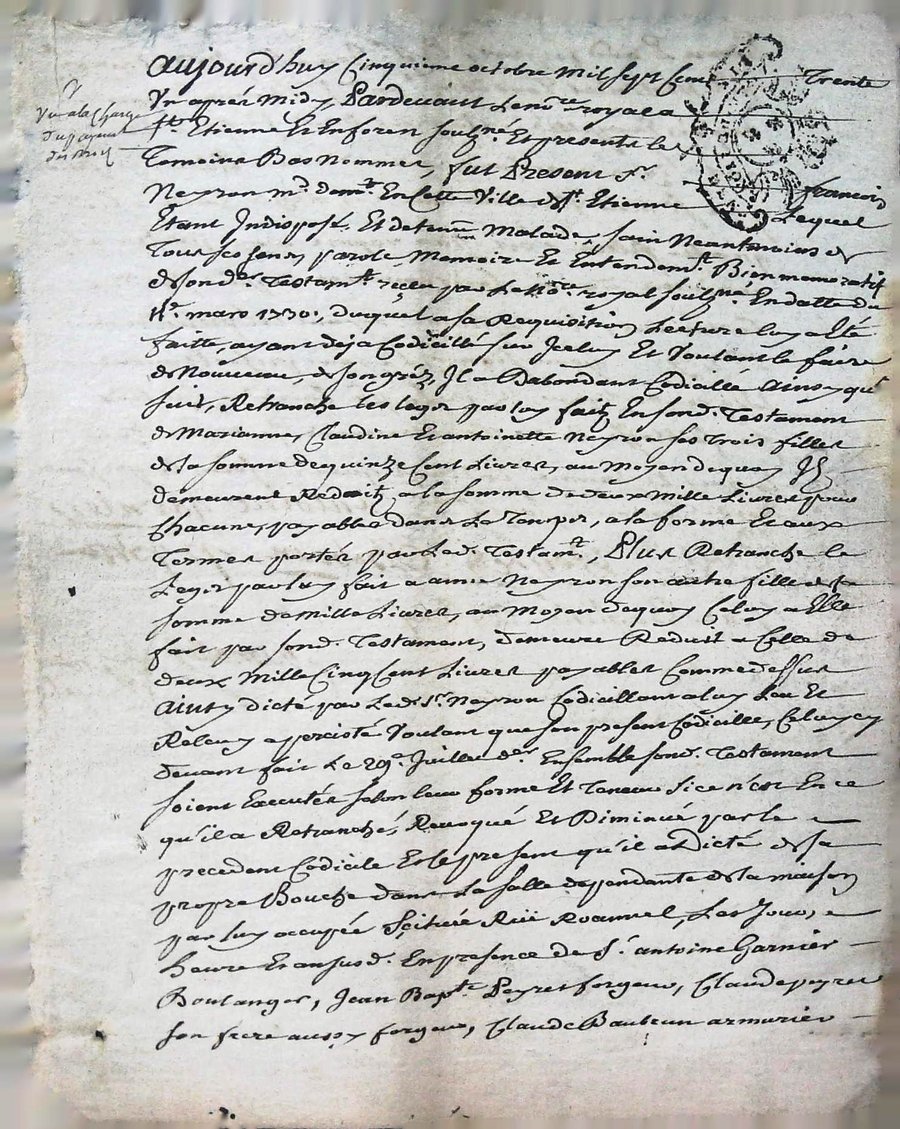 Vu a la Charge
du payement
des droits
aujourd'huy Cinquieme octobre Mil sept Cent Trente
Un aprés Midy Pardevant Le no.re royal a
St. Etienne Et En forez soussigné Et présents les
Temoins Bas Nommez, fut Present Sr. francois
Neyron md. demt. En Cette Ville de St. Etienne Lequel
Etant Indisposé Et detenu Malade, sain Neantmoins de
Tous ses sens, parole, Memoire Et Entendemt. Bien memoratif
de son der. Testamt. reçeu par Le no.re royal soussigné En datte du
11e. mars 1730, duquel a sa Requisition Lecture luy a Eté
faitte, ayant déja Codicillé sur Iceluy Et Voulant le faire
de Nouveau, de son gréz, Il a Dabondant Codicillé ainsy que
suit, Retranche les legs par luy faits En sond. Testament
a Marianne, Claudine Et antoinette Neyron ses Trois filles
de la somme de quinze Cent Livres, au Moyen de quoy Ils
demeurent Reduits a la somme de deux Mille Livres pour
Chacune, payables dans Le Temps, a la forme Et aux
Termes portés par Led. Testamt., Plus Retranche le
Legs par luy fait a anne Neyron son autre fille de la
somme de Mille Livres, au Moyen de quoy Celuy a Elle
fait par sond. Testament, demeure Reduit a Celle de
deux Mille Cinq Cent Livres payables Comme dessus
ainsy dicté par Led. Sr. Neyron Codicillant a luy Leu Et
Releu y a percisté Voulant que son present Codicille, Celuy cy
devant fait Le 29e. Juillet der. Ensemble sond. Testament
soient Executés selon leur forme Et Teneur si ce n'est En ce
qu'il a Retranché, Revoqué Et Diminué par le
precedent Codicile Et le present qu'il a Dicté de sa
propre Bouche dans La salle dependante de la maison
par luy occupée Scituée Rüe Roannel, Les Jour,
heure Et an susd. En presence de Sr. antoine Garnier
Boulanger, Jean Bapte. Peyret forgeur, Claude peyret
son frere aussy forgeur, Claude armurier